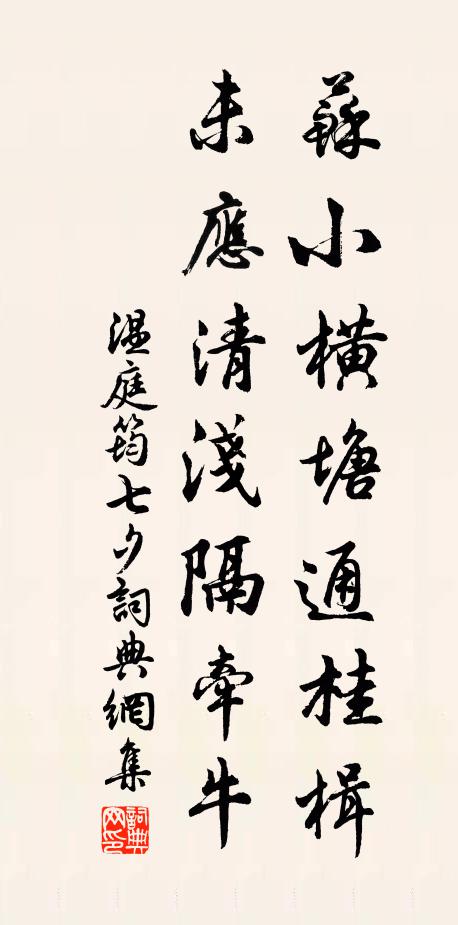 蘇小橫塘通桂楫
未應清淺隔牽牛
溫庭筠七夕詞典網集
詞典網印